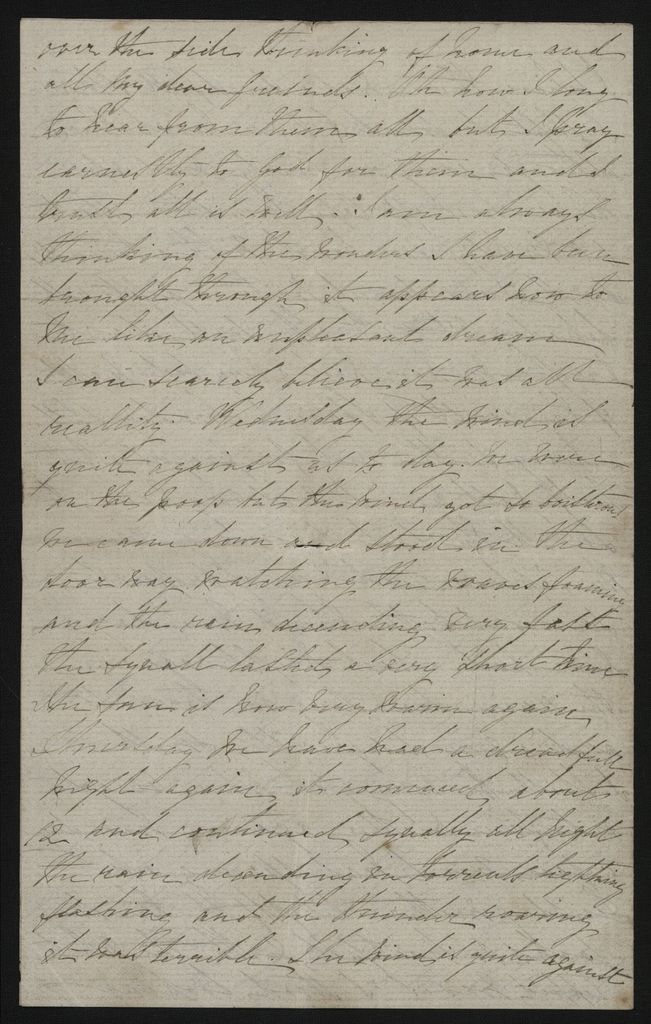 over the side thinking of home and
all my dear freinds. Oh how I long
to hear from them all but I pray
earnestly to God for them and I
trust all is well. I am always
thinking of the wonders I have been
brought through it appears now to
me like an unpleasant dream
I can scarcely believe it was all
reallity. Wednesday the wind is
quite against us to day. We were
on the poop but the wind got so boisterous
we came down and stood in the
door way watching the waves foaming
and the rain decending very fast
the squall lasted a very short time
the sun is now very warm again
Thursday we have had a dreadfull
night again it commenced about
12 and continued squally all night
the rain decending in torrents lightning
flashing and the thunder roaring
it was terrible. The wind is quite against